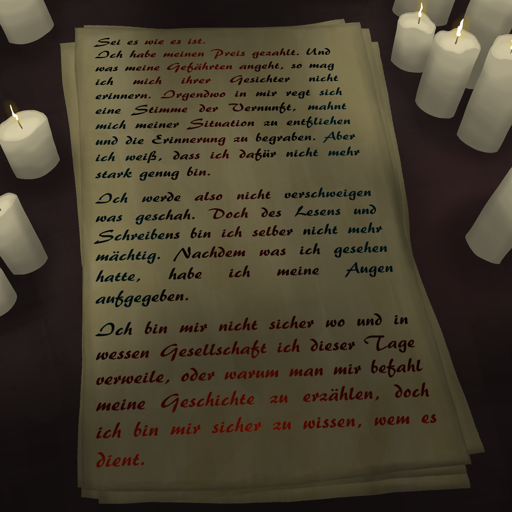 Sei es wie es ist.
Ich habe meinen Preis gezahlt. Und
was meine Gefährten angeht, so mag
ich mich ihrer Gesichter nicht
erinnern. Irgendwo in mir regt sich
eine Stimme der Vernunft, mahnt
mich meiner Situation zu entfliehen
und die Erinnerung zu begraben. Aber
ich weiß, dass ich dafür nicht mehr
stark genug bin.
Ich werde also nicht verschweigen
was geschah. Doch des Lesens und
Schreibens bin ich selber nicht mehr
mächtig. Nachdem was ich gesehen
hatte, habe ich meine Augen
aufgegeben.
Ich bin mir nicht sicher wo und in
wessen Gesellschaft ich dieser Tage
verweile, oder warum man mir befahl
meine Geschichte zu erzählen, doch
ich bin mir sicher zu wissen, wem es
dient.